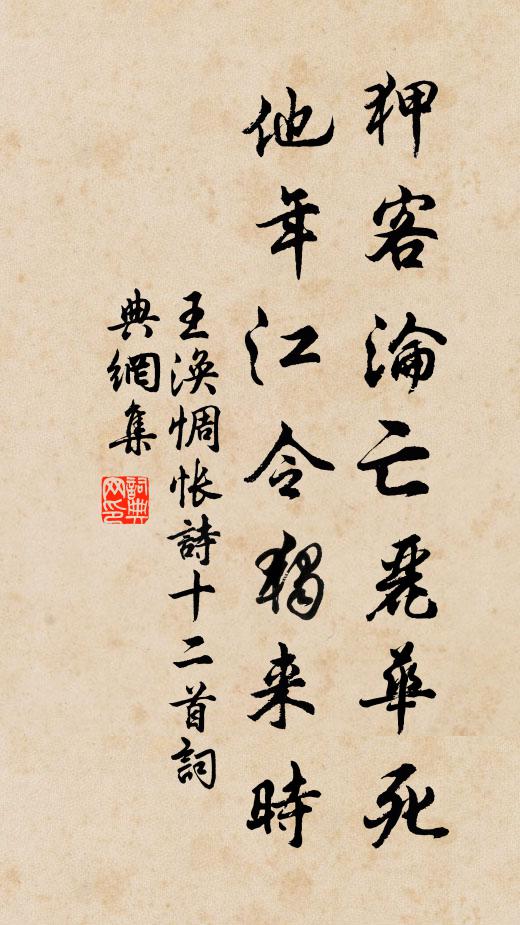 狎客淪亡麗華死
他年江令獨来時
王渙惆悵詩十二首詞
典網集
詞典網印